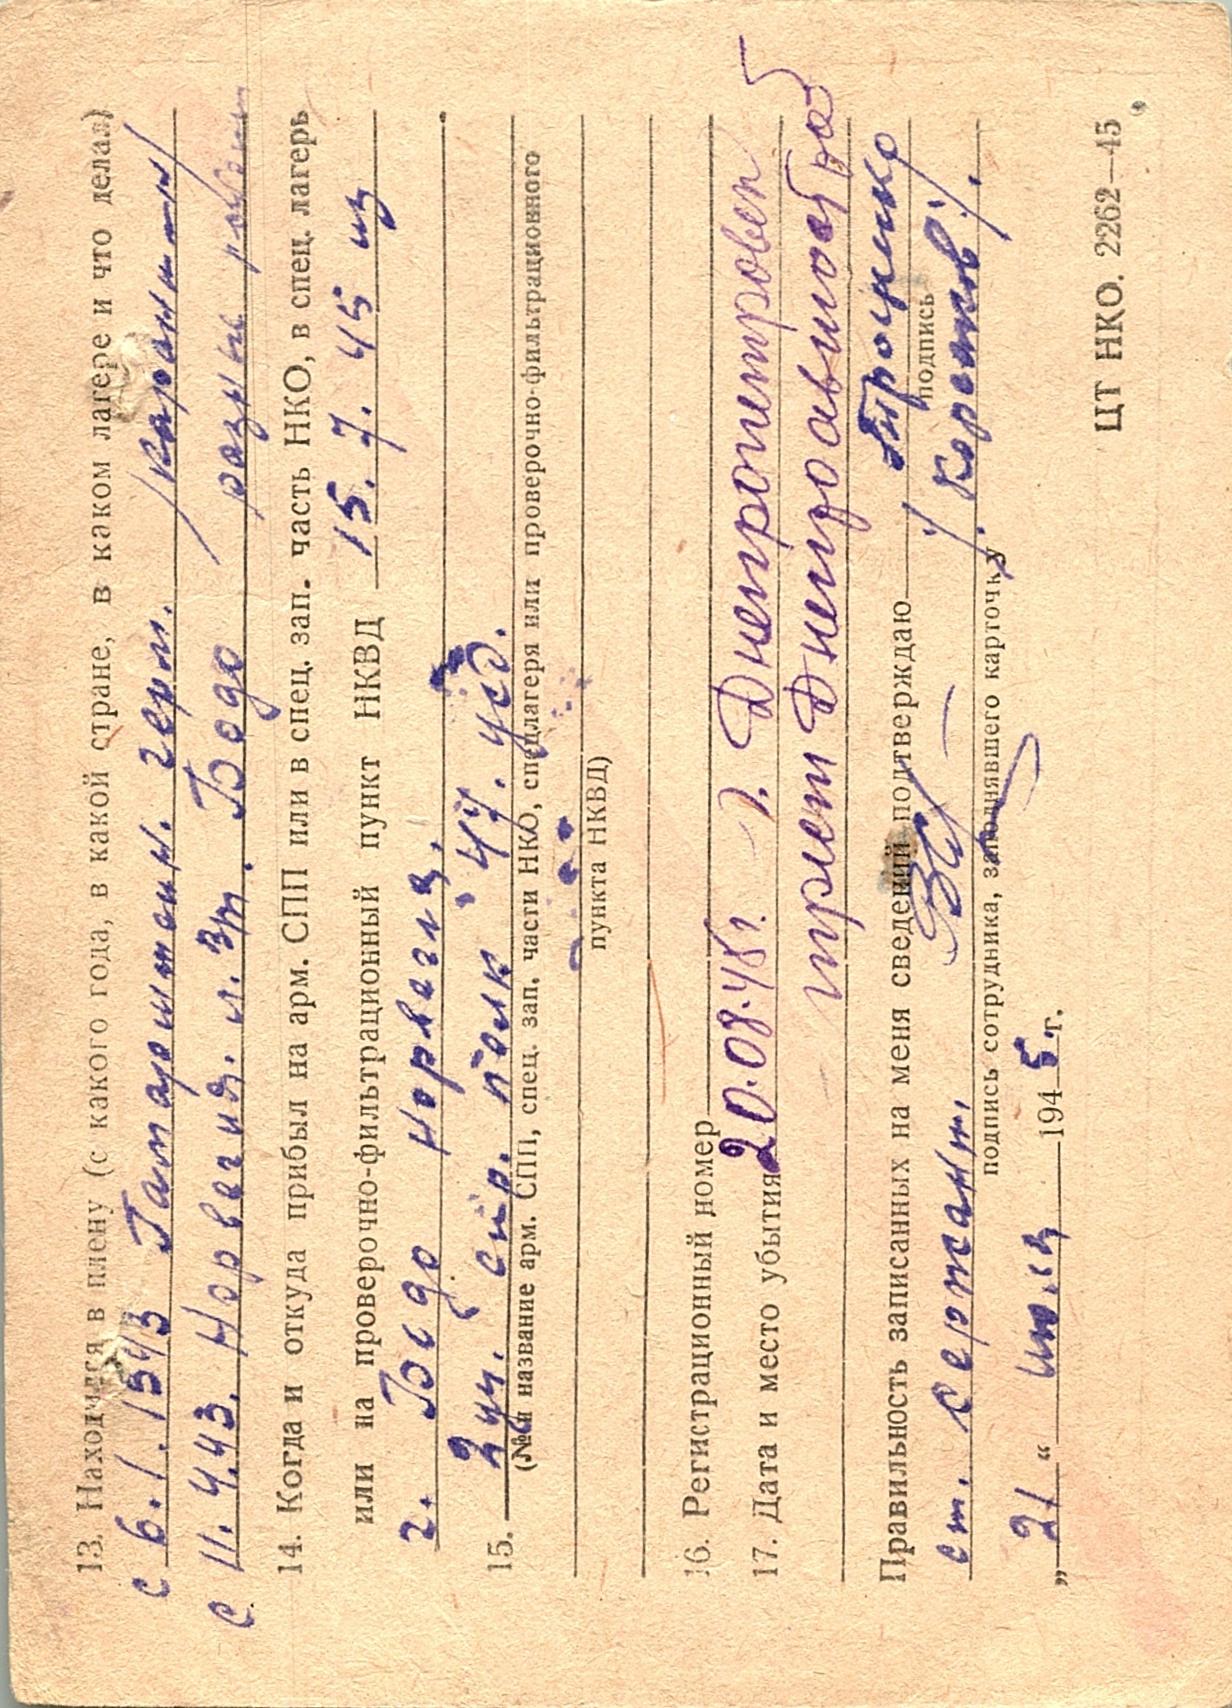 13. Находился в плену (с какого года, в какой стране, в каком лагере и что делал)
с 6.1.1943 герм. /карантин/
с 11.4.43. Норвегия. г. Бодо разные
14. Когда и откуда прибыл на арм. СПП или в спец. зап. часть НКО, в спец. лагерь
или на проверочно-фильтрационный пункт НКВД 15.7.45 из
г. Бодо Норвегия,
15. стр. полк 47.
(№ и название арм. СПП, спец. зап. части НКО, спецлагеря или проверочно-фильтрационного
пункта НКВД)
16. Регистрационный номер
17. Дата и место убытия 20.08.45г. г. Днепропетровск
трест
Правильность записанных на меня сведений подтверждаю Троценко
подпись
ст. сержант. /Коротков/.
подпись сотрудника, заполнявшего карточку
„21“ июля 1945 г.
ЦТ НКО. 2262—45